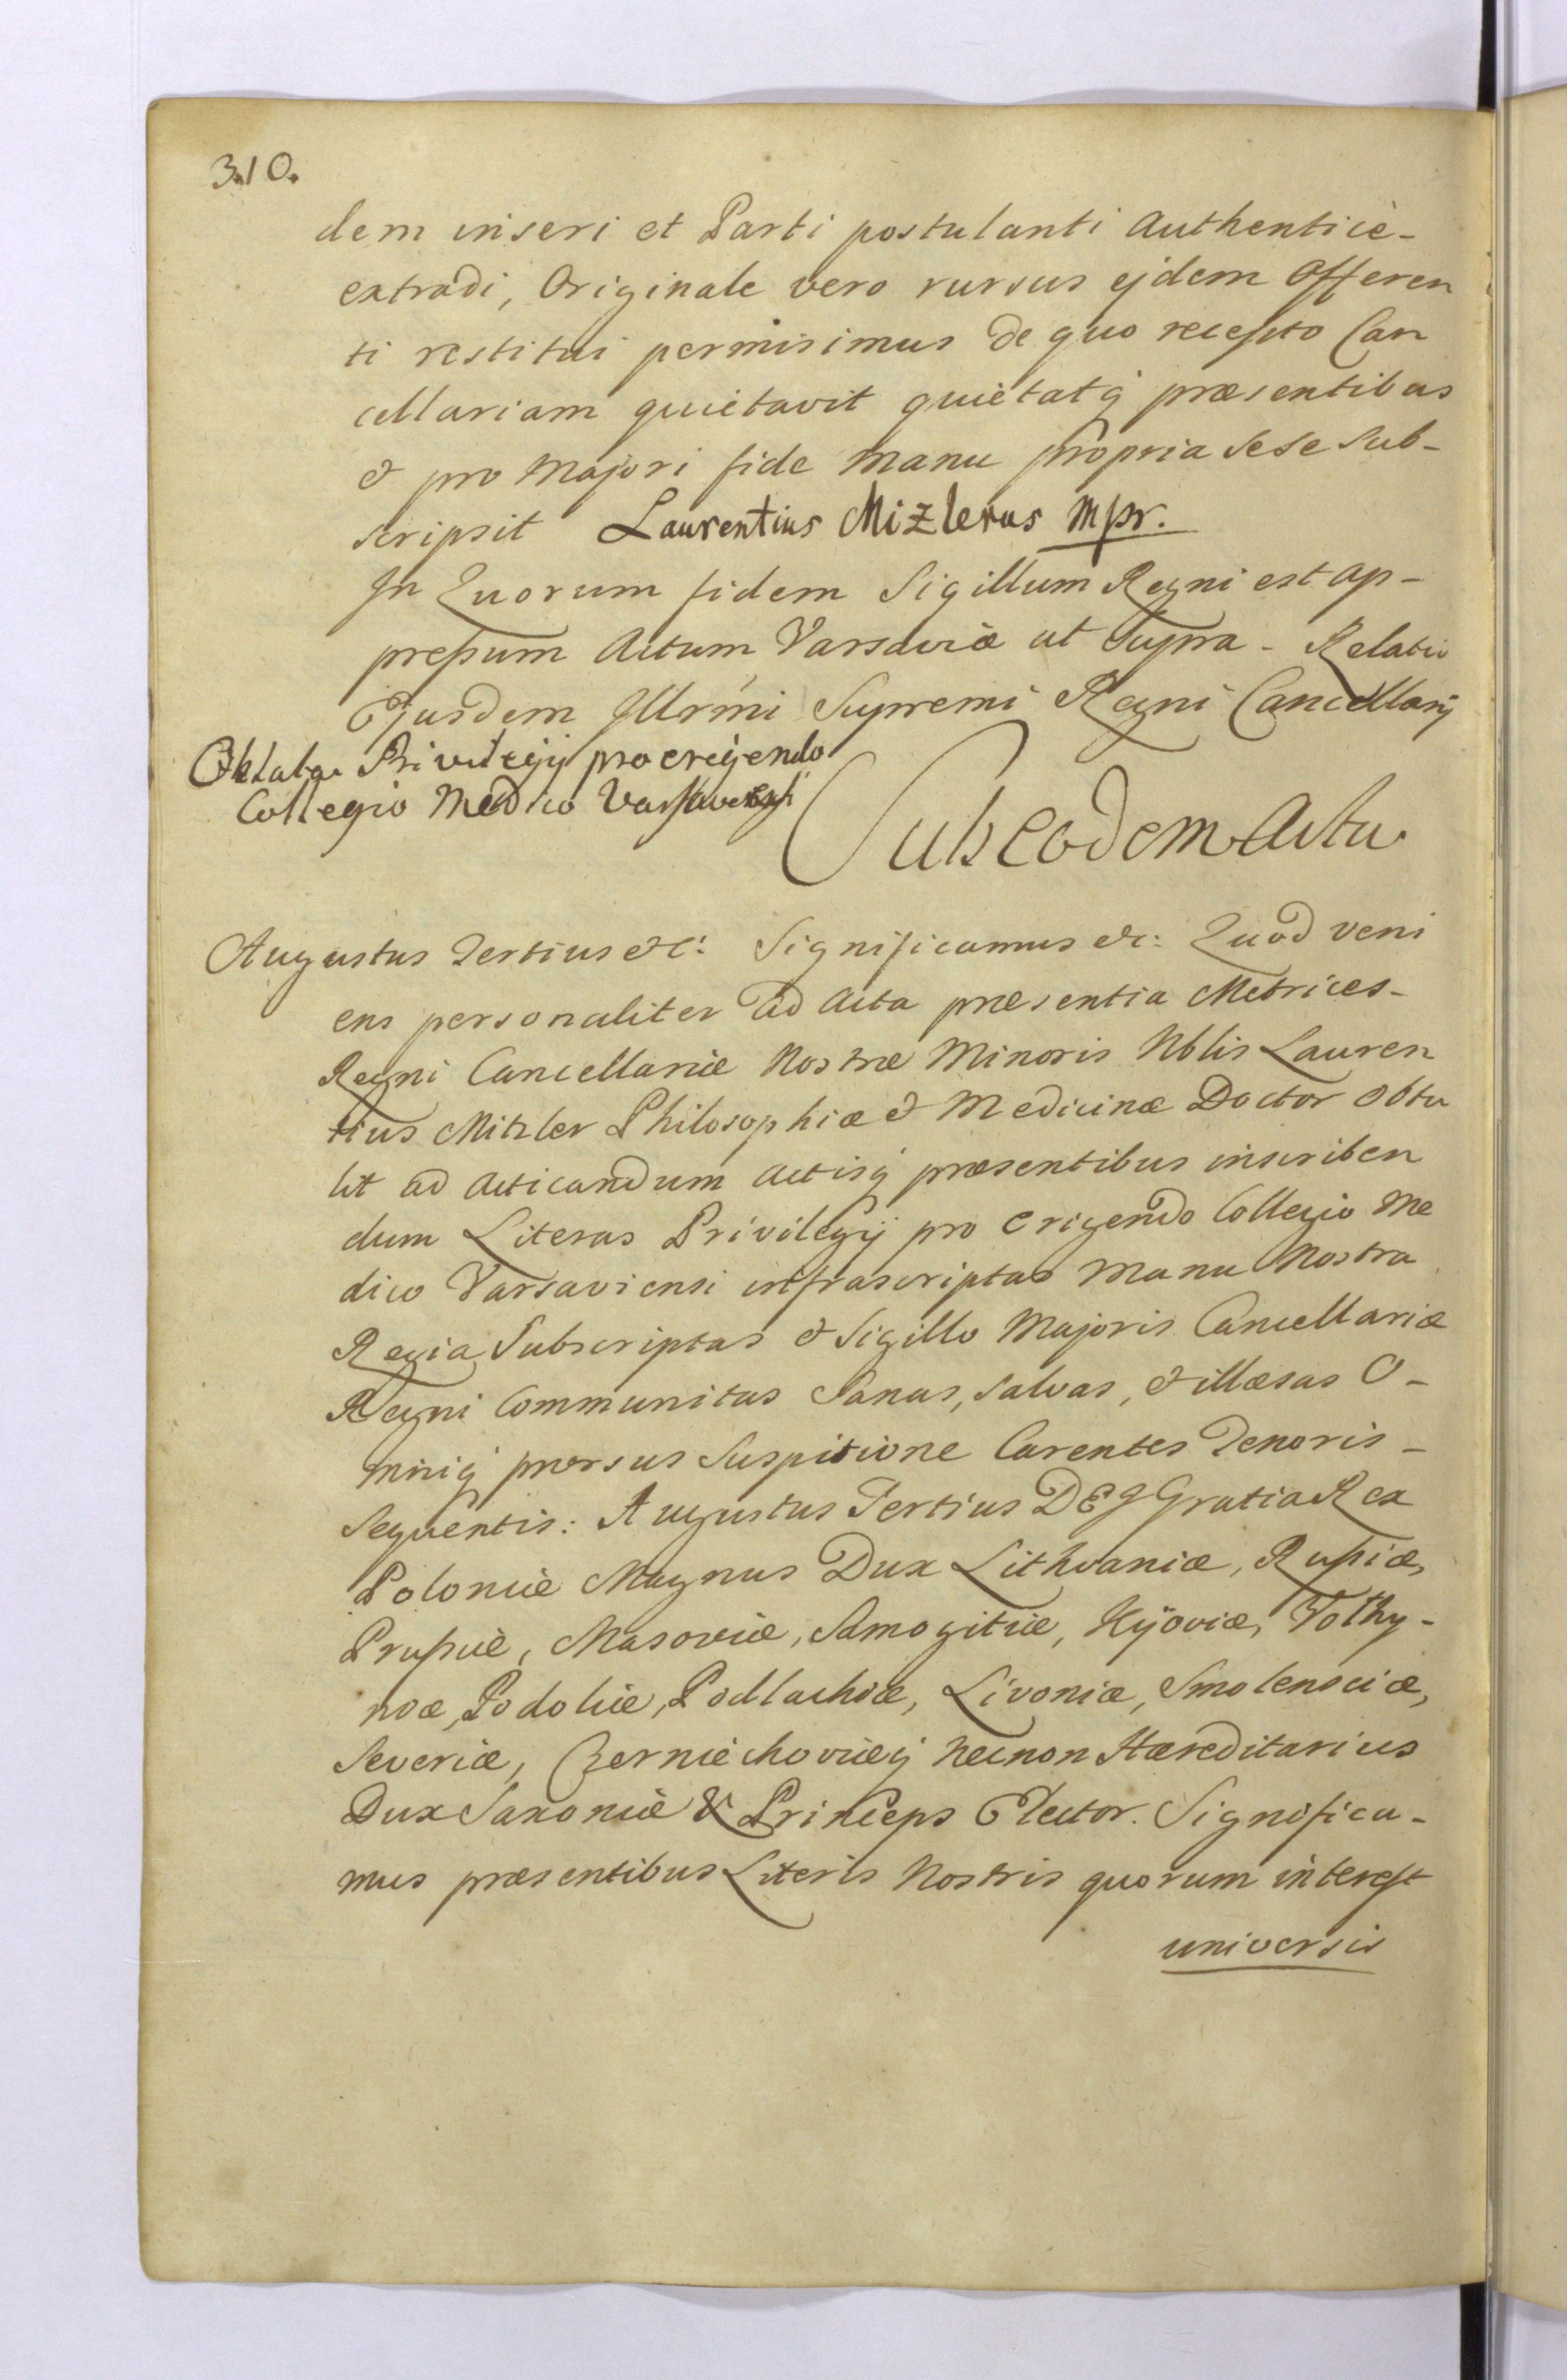 3.10.
dem inseri et Parti postulanti Authenticè-
extradi, Originale vero rursus ejdem Offeren
ti restitui permisimus de quo recepto Can
cellariam quietavit quietatq præsentibus
& pro Majori fide Manu propria sese sub-
scripsit Laurentius Mizlerus Mpr.
In Quorum fidem Sigillum Regni est ap-
pressum Actum Varsaviæ ut Supra - Relatio
Ejusdem Illrmi Supremi Regni Cancellarij
Oblata Privilegij pro erigendo
Collegio Medico Varsaviensi
Sub eodem Actu
Augustus Tertius &c: Significamus &c: Quod veni
ens personaliter ad Acta præsentia Metrices-
Regni Cancellariæ Nostræ Minoris Nblis Lauren
tius Mitzler Philosophiæ & Medicinæ Doctor obtu
lit ad Acticandum Actisq præsentibus inscriben
dum Literas Privilegij pro erigendo Collegio Me
dico Varsaviensi infrascriptas Manu Nostra
Regia Subscriptas & Sigillo Majoris Cancellariæ
Regni Communitas Sanas, salvas, & illæsas O-
mniq prorsus Suspitione Carentes Tenoris-
Sequentis: Augustus Tertius DEJ Gratia Rex
Poloniæ Magnus Dux Lithvaniæ, Russiæ,
Prussiæ, Masoviæ, Samogitiæ, Kÿoviæ, Volhy-
niæ, Podoliæ, Podlachiæ, Livoniæ, Smolensciæ,
Severiæ, Czerniechoviæq necnon Hæreditarius
Dux Saxoniæ & Princeps Elector. Significa-
mus præsentibus Literis Nostris quorum interest
universis